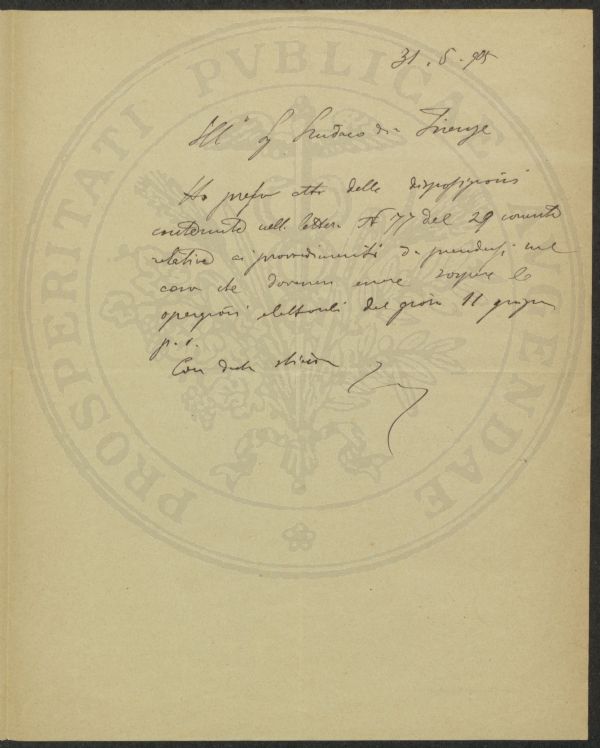 PROSPERITATI PVBLICAE AVGENDAE
31. 5. 905
Ill° Sg. Sindaco di Firenze
Ho preso atto delle disposizioni
contenute nell. lettera N 77 del 29 corrente
relative ai provvedimenti da prendersi nel
caso che dovessero essere sospese le
operazioni elettorali del giorno 11 giugno
p. v.
Con distinta stima